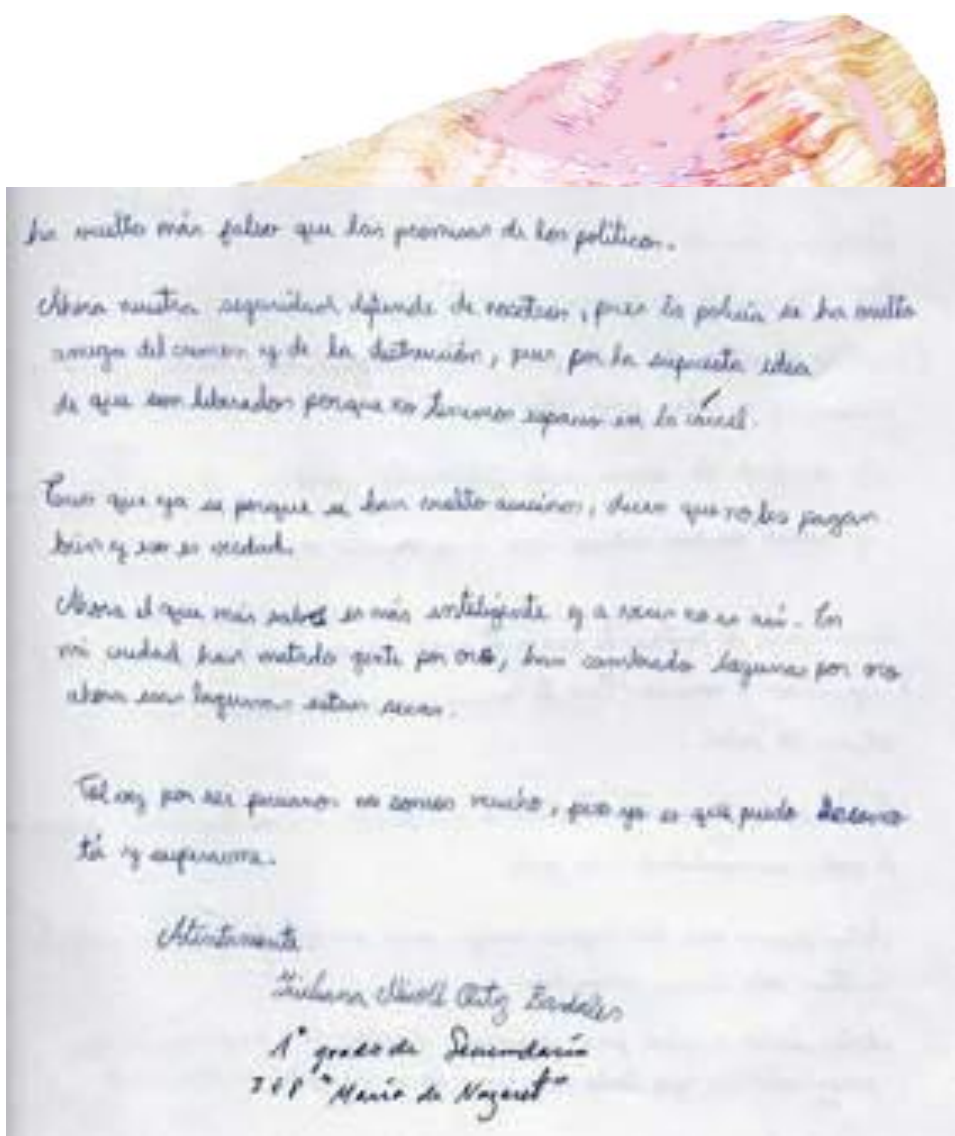 ha vuelto más falso que las promesas de los políticos.
Ahora nuestra seguridad depende de nosotros, pues la policía se ha vuelto
amiga del crimen y de la destrucción, pues por la supuesta idea
de que son liberados porque no tenemos espacio en la cárcel.
Creo que ya se porque se han vuelto asesinos, dicen que no les pagan
bien y eso es verdad.
Ahora el que más sabe es más inteligente y a veces no es así. En
mi ciudad han matado gente por oro, han cambiado lagunas por oro
ahora esas lagunas estan secas.
Tal vez por ser peruanos no somos mucho, pero yo se que puedo
y superarme.
Atentamente
Ortiz
1° grado de Secundaria
"María de Nazaret"